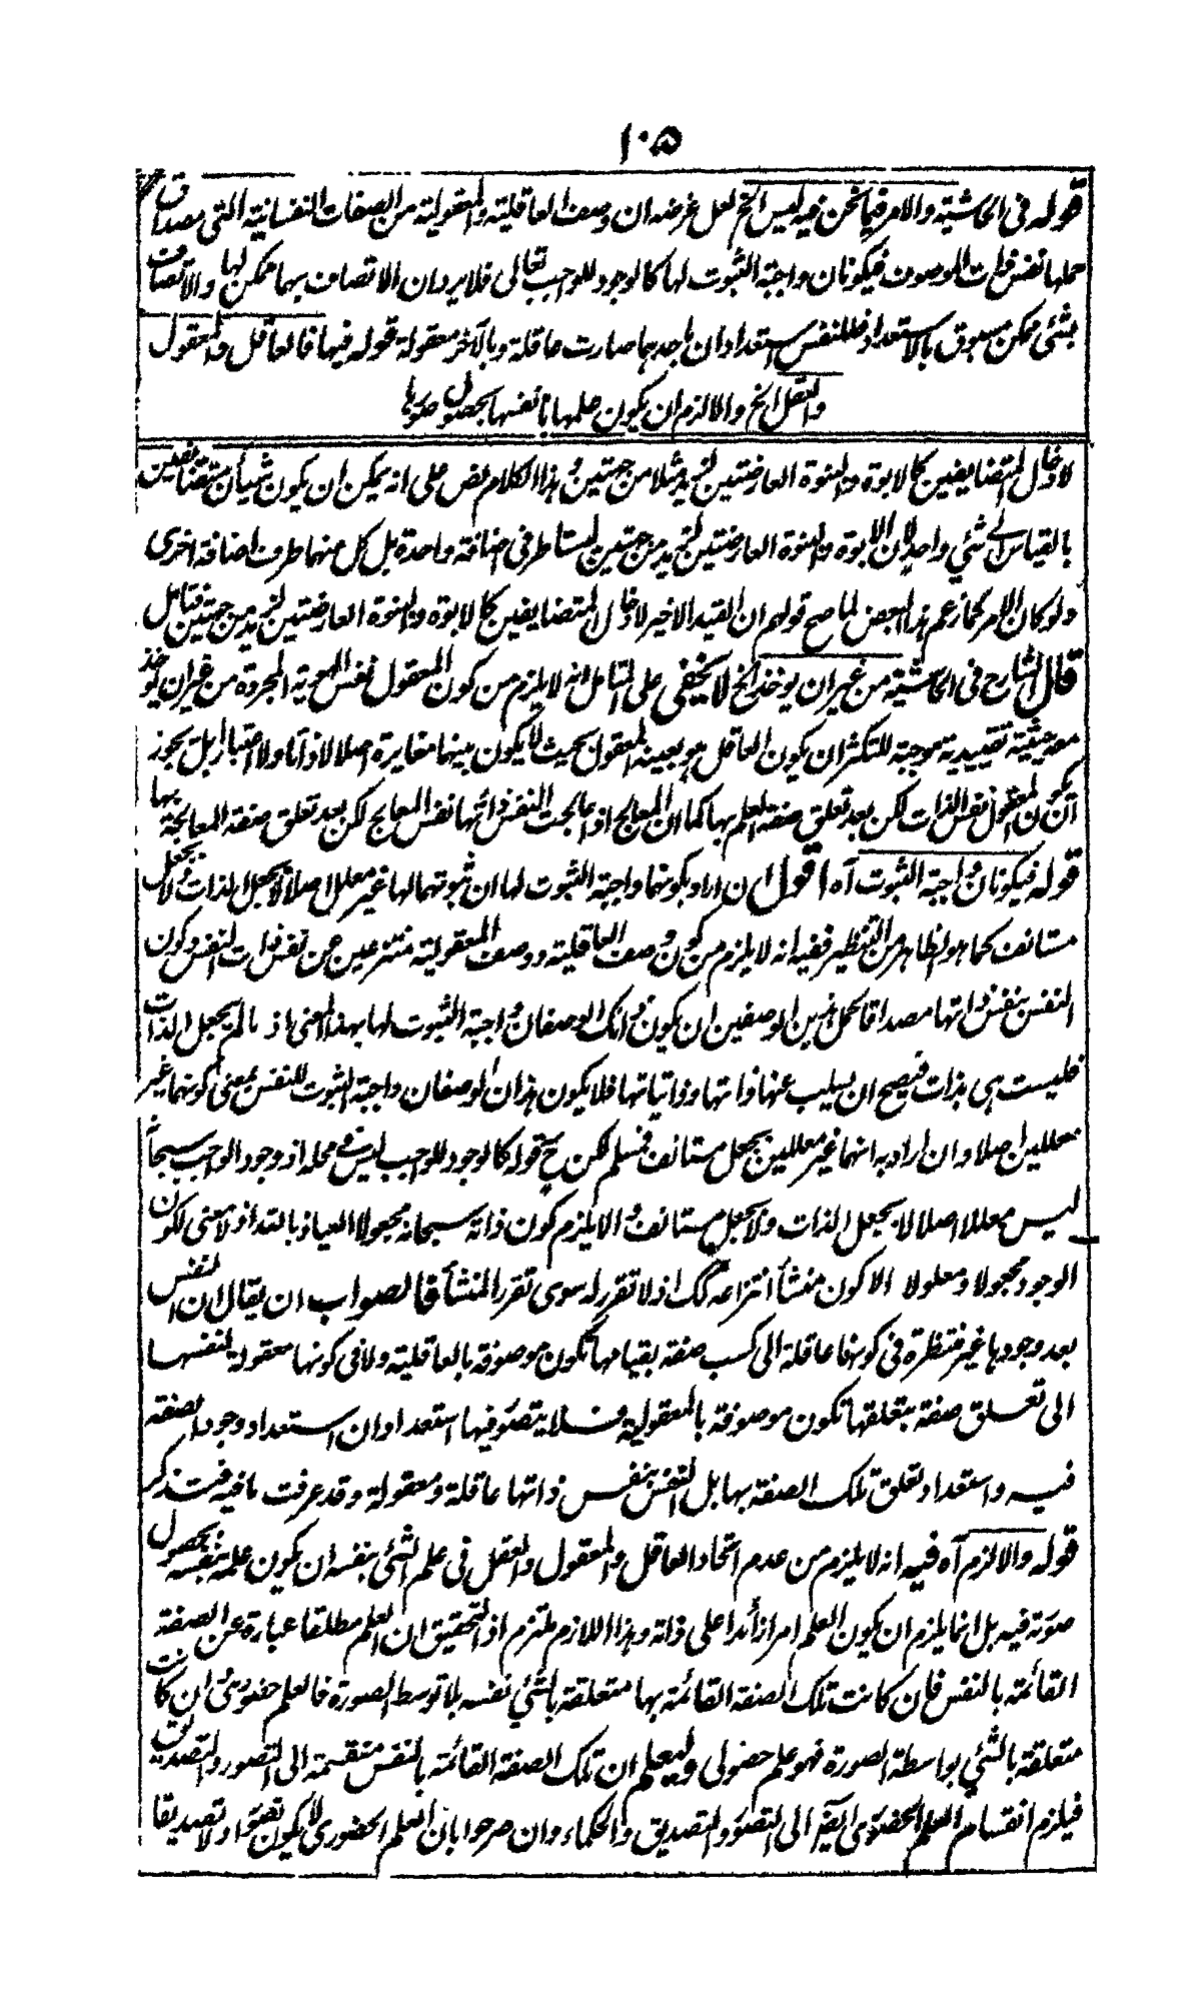 ١٠٥
قوله فى الحاشية والامر فيما نحن فيه ليس الخ لعل غرضه ان وصف العاقلية والمعقولية من الصفات النفسانية التى مصداق
حملها نفس ذات الموصوف فيكونان واجبة الثبوت لها كالوجود للواجب تعالى فلا يرد ان الاتصاف بهما ممكن لها والاتصاف
بشئ ممكن مسبوق بالاستعداد فللنفس استعدادان باحدهما صارت عاقلة وبالآخر معقولة قوله فيها فالعاقل والمعقول
والعقل الخ والا لزم ان يكون علمها بانفسها بحصول صورها
لادخال المتضايفين كالابوة والبنوة العارضتين لزيد مثلا من جهتين وهذا الكلام نص على انه يمكن ان يكون شيآن متضايفين
بالقياس الى شئ واحد لان الابوة والبنوة العارضتين لزيد من جهتين ليستا طرفى اضافة واحدة بل كل منهما طرف اضافة اخرى
ولو كان الامر كما زعم هذا البعض لما صح قولهم ان القيد الاخير لادخال المتضايفين كالابوة والبنوة العارضتين لزيد من جهتين فتامل
قال الشارح فى الحاشية من غير ان يوخذ الخ لا يخفى على المتامل انه لا يلزم من كون المعقول نفس الهوية المجردة من غير ان يوخذ
معه حيثية تقييدية موجبة للتكثر ان يكون العاقل هو بعينه المعقول بحيث لا يكون بينهما مغايرة اصلا لا ذاتا ولا اعتبارا بل يجوز
ان يكون المعقول نفس الذات لكن بعد تعلق صفة العلم بها كما ان المعالج اذا عالجت النفس ذاتها نفس المعالج لكن بعد تعلق صفة المعالجة بها
قوله فيكونان واجبة الثبوت آه اقول ان اراد بكونهما واجبة الثبوت لها ان ثبوتهما لها غير معلل اصلا لا بجعل الذات ولا بجعل
مستانف كما هو الظاهر من التنظير ففيه انه لا يلزم من كون وصف العاقلية ووصف المعقولية منتزعين عن نفس ذات النفس وكون
النفس بنفس ذاتها مصداقا لحمل هذين الوصفين ان يكون ذانك الوصفان واجبة الثبوت لها بهذا المعنى اذ ما لم يجعل الذات
فليست هى بذات فيصح ان يسلب عنها ذاتها وذاتياتها فلا يكون هذان الوصفان واجبة الثبوت للنفس بمعنى كونهما غير
معللين اصلا وان اراد به انهما غير معللين بجعل مستانف فمسلم لكن ح قوله كالوجود للواجب ليس فى محله اذ وجود الواجب سبحانه
ليس معللا اصلا لا بجعل الذات ولا بجعل مستانف والا يلزم كون ذاته سبحانه مجعولا العياذ بالله اذ لا معنى لكون
الوجود مجعولا ومعلولا الا كون منشأ انتزاعه كك اذ لا تقرر له سوى تقرر المنشأ فالصواب ان يقال ان النفس
بعد وجودها غير منتظرة فى كونها عاقلة الى كسب صفة بقيامها تكون موصوفة بالعاقلية ولا فى كونها معقولة لنفسها
الى تعلق صفة بتعلقها تكون موصوفة بالمعقولية فلا يتصور فيها استعدادان استعداد وجود الصفة
فيه واستعداد تعلق تلك الصفة بها بل النفس بنفس ذاتها عاقلة ومعقولة وقد عرفت ما فيه فتذكر
قوله والا لزم آه فيه انه لا يلزم من عدم اتحاد العاقل والمعقول والعقل فى علم الشئ بنفسه ان يكون علمه بنفسه بحصول
صورته فيه بل انما يلزم ان يكون العلم امرا زائدا على ذاته وهذا اللازم ملتزم اذ التحقيق ان العلم مطلقا عبارة عن الصفة
القائمة بالنفس فان كانت تلك الصفة القائمة بها متعلقة بالشئ نفسه بلا توسط الصورة فالعلم حضورى وان كانت
متعلقة بالشئ بواسطة الصورة فهو علم حصولى وليعلم ان تلك الصفة القائمة بالنفس منقسمة الى التصور والتصديق
فيلزم انقسام العلم الحضورى ايضا الى التصور والتصديق والحكماء وان صرحوا بان العلم الحضورى لا يكون تصورا ولا تصديقا